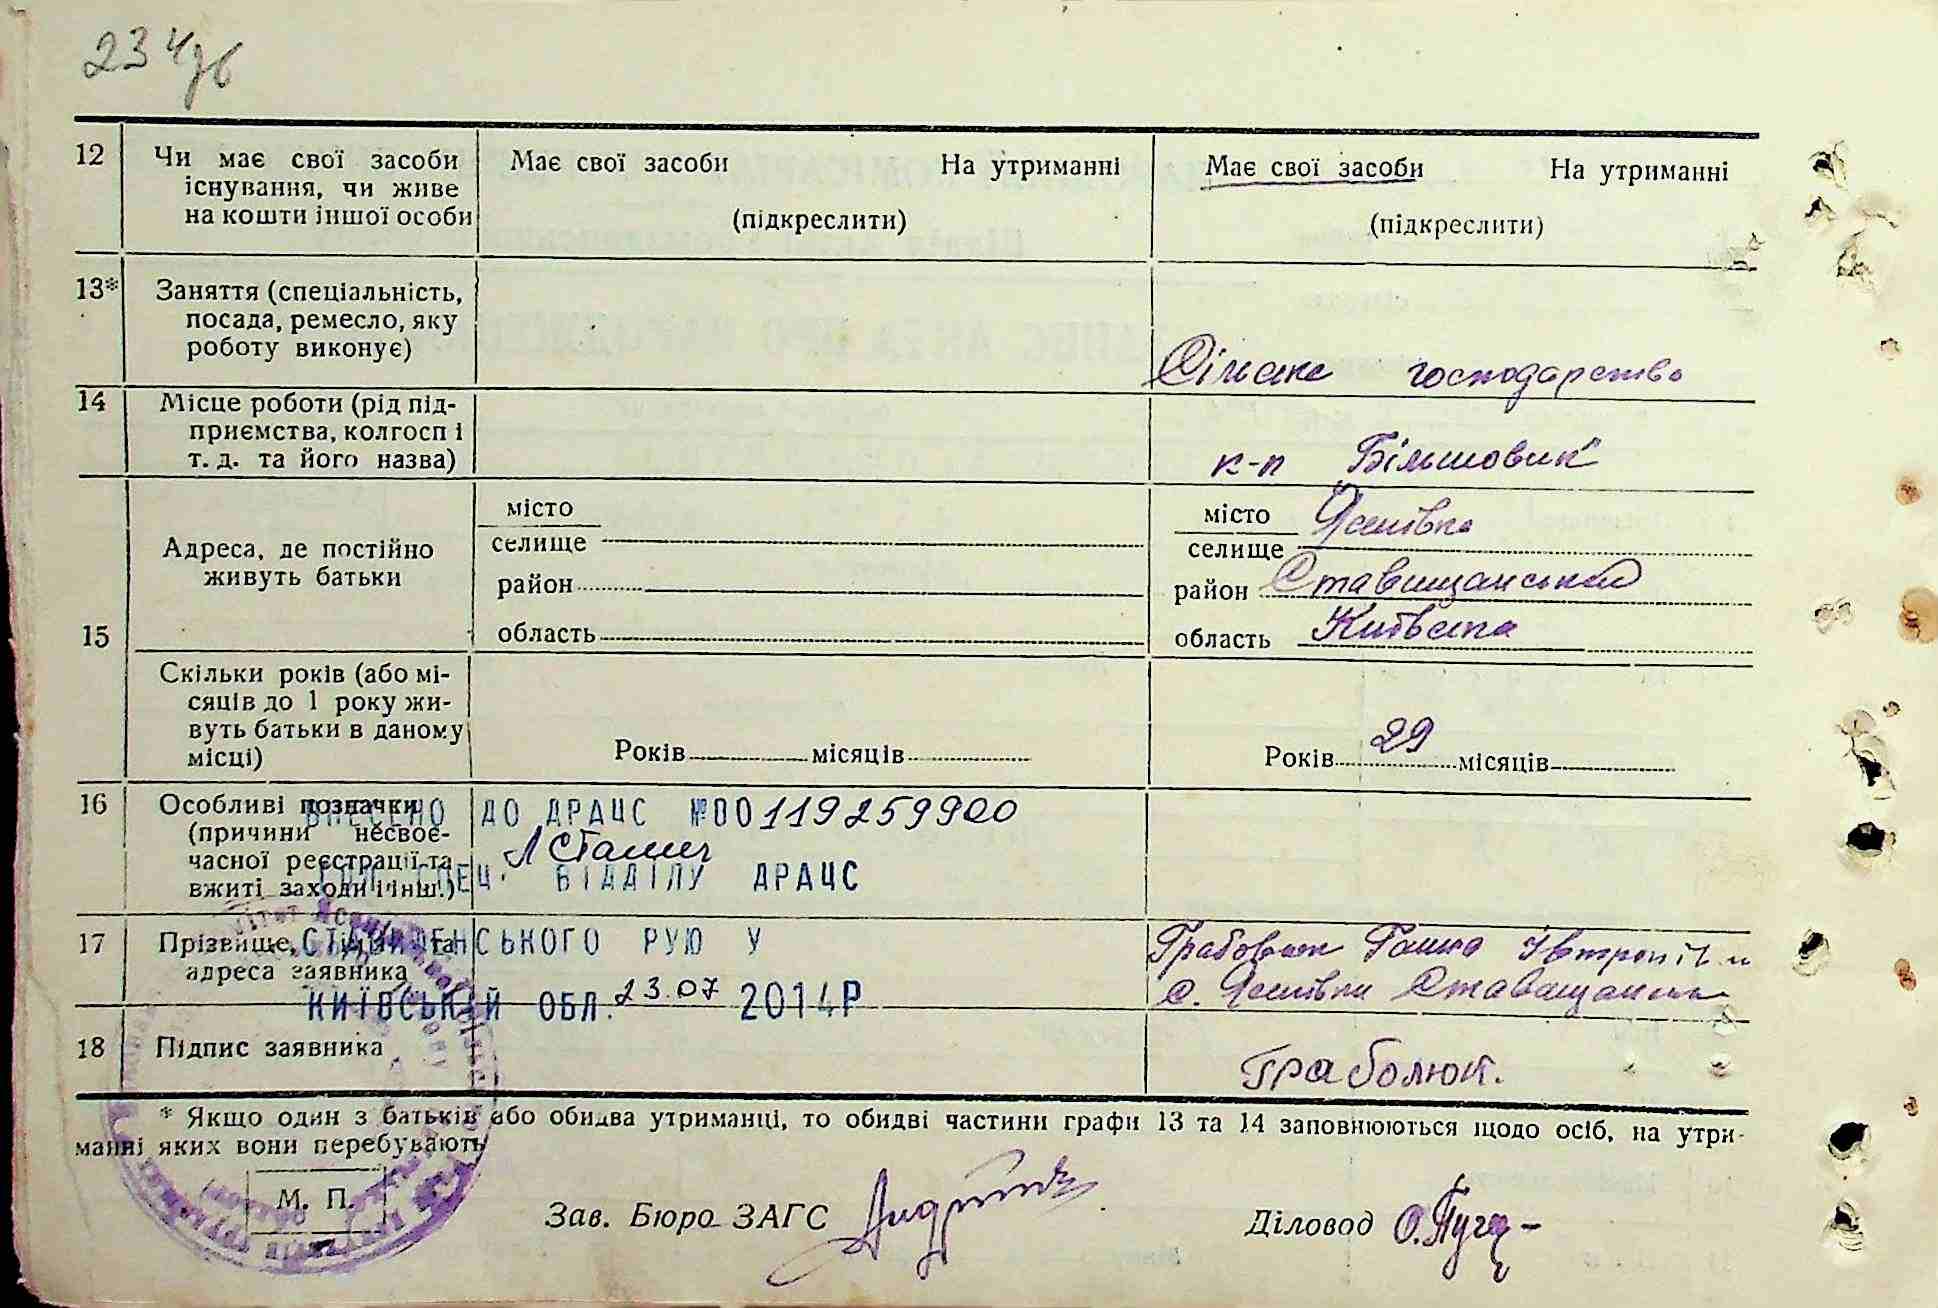 23
12 Чи має свої засоби існування, чи живе на кошти іншої особи
Має свої засоби На утриманні
(підкреслити)
Має свої засоби На утриманні
(підкреслити)
13* Заняття (спеціальність,
посада, ремесло, яку
роботу виконує)
Сільське господарство
14 Місце роботи (рід під-
приємства, колгосп і
т. д. та його назва)
к-п Більшовик
15
Адреса, де постійно
живуть батьки
місто
селище
район
область
місто
селище
район Ставищанський
область Київська
Скільки років (або мі-
сяців до 1 року жи-
вуть батьки в даному
місці)
Років місяців
Років 29 місяців
16 Особливі позначки
(причини несвоє-
часної реєстрації та
вжиті заходи і інш.)
ВНЕСЕНО ДО ДРАЦС №00119259900
СПЕЦ. ВІДДІЛУ ДРАЦС
СТАВИЩЕНСЬКОГО РУЮ У
КИЇВСЬКІЙ ОБЛ. 23.07 2014Р
17 Прізвище, ім'я та
адреса заявника
Ганна
с. Ставищанськ
18 Підпис заявника
Граболюк.
* Якщо один з батьків або обидва утриманці, то обидві частини графи 13 та 14 заповнюються щодо осіб, на утри-
манні яких вони перебувають
М. П.
Зав. Бюро ЗАГС
Діловод О.